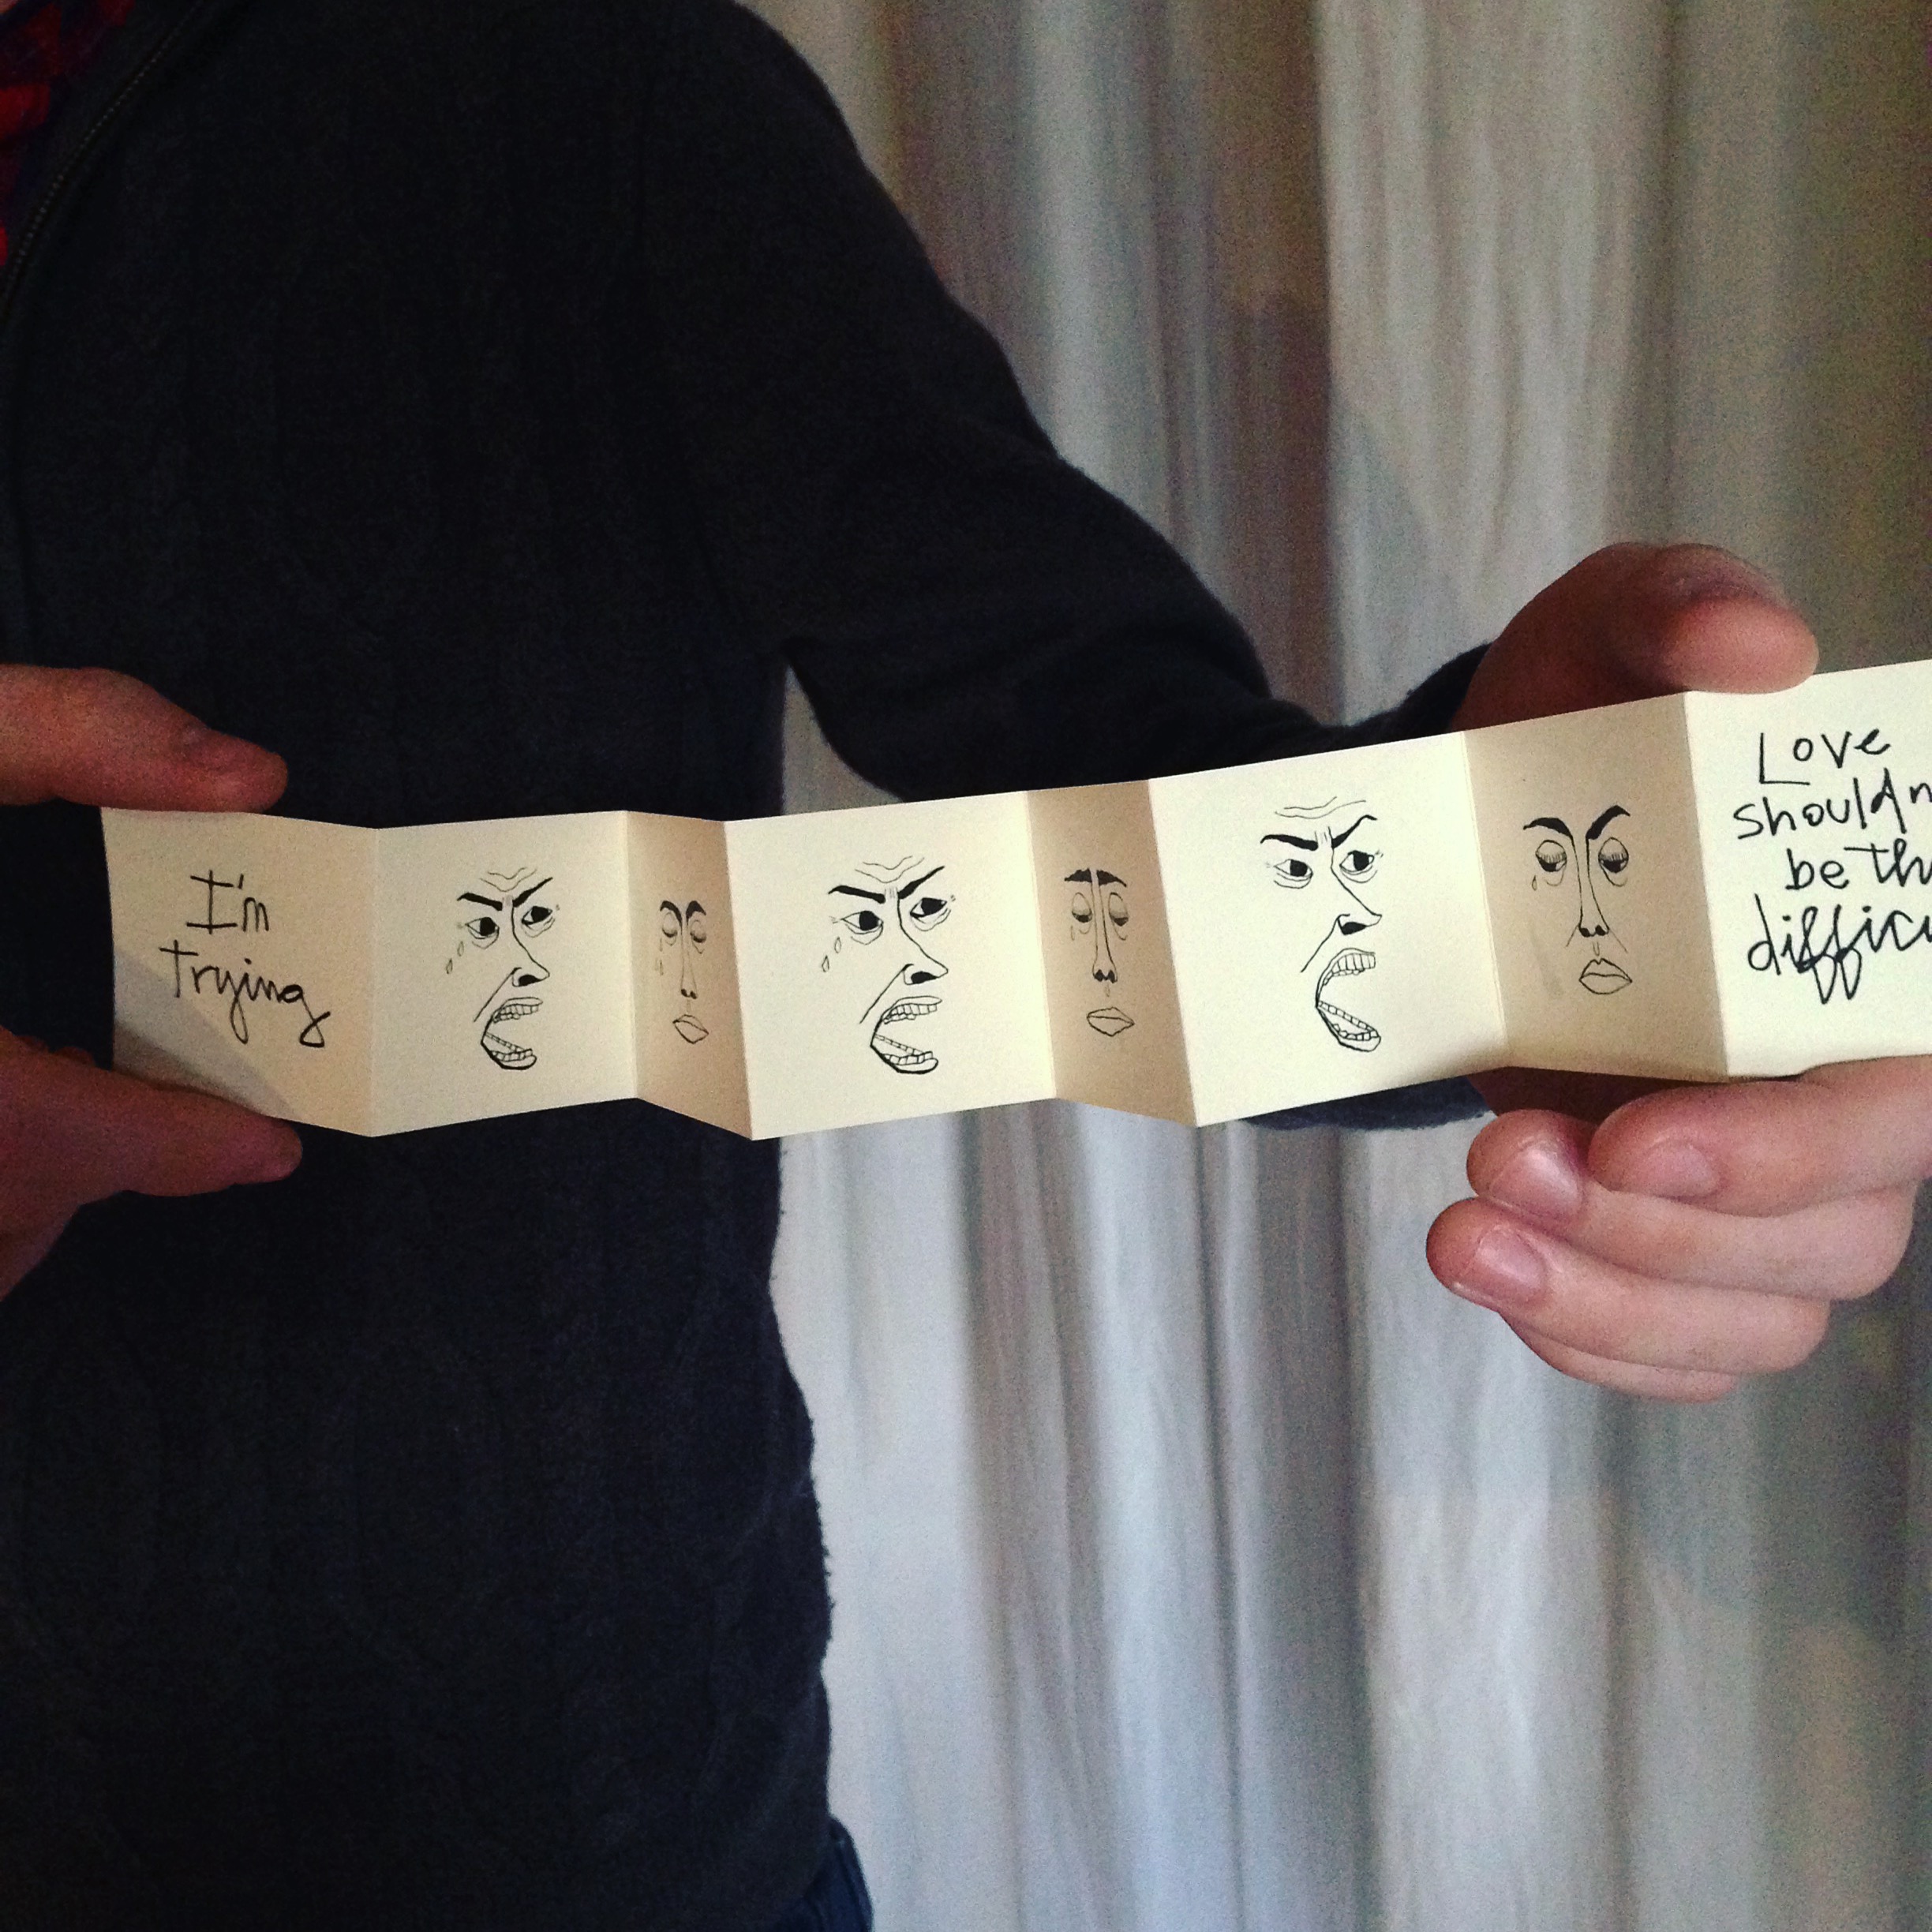 I'm
trying
Love
shouldn
be th
difficu